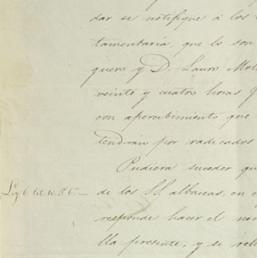 dar se notifique á los
tamentaria, que lo son
quero y D. Lauro Mol
veinte y cuatro horas q
con apercibimiento que
tendrán por radicados
Pudiera suceder que
de los SS. albaceas, en
responde hacer el
lla presente, y se